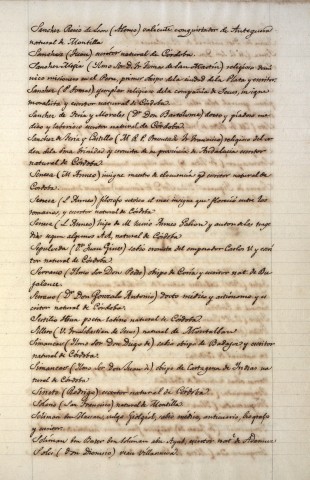 Sanchez Ruiz de Leon (Alonso) valiente conquistador de Antequera
natural de Montilla
Sanchez (Juan) natural de Cordoba.
Sanchez (Ylmo Sor D. Fr Tomas de San Martin) religioso
nico misionero en el Peru, primer obispo de la ciudad de la Plata y escritor
Sanchez (P. Tomas) ejemplar religioso de la compañia de Jesus, insigne
moralista y escritor natural de Cordoba
Sanchez de Feria y Morales (Dn. Don Bartolomé) docto y piadoso me
dico y laborioso escritor natural de Cordoba
Sanchez de Feria y Castillo (M. R. P. Francisco) religioso del or
den de la Sma. Trinidad y cronista de su provincia de Andalucia escritor
natural de Cordoba
Seneca (M. Anneo) insigne maestro de elocuencia y escritor natural de
Cordoba.
Seneca (L. Anneo) filosofo estoico el mas insigne que florecio entre los
romanos, y escritor natural de Cordoba
Seneca (L. Anneo) hijo de M. autor de las trage
dias que algunos nat. natural de Cordoba
Sepulveda (Dn. Juan Gines) sabio cronista del emperador Carlos V. y escri
tor natural de Cordoba.
Serrano (Ylmo Sor Don Pedro) obispo de Coria y escritor nat. de Bu
jalance.
Serrano (Dn. Don Gonzalo Antonio) docto medico y astronomo, y es
critor natural de Cordoba.
Sextilio Hena, poeta latino natural de Cordoba
Sillero (V. Sebastian de Jesus) natural de Montalban
Simancas (Ylmo Sor Don Diego) sabio obispo de Badajoz y escritor
natural de Cordoba
Simancas (Ylmo Sor Don Juan de) obispo de Cartagena de Indias na
tural de Cordoba
(Rodrigo) escritor natural de Cordoba
Solano (San Francisco) natural de Montilla
Soliman ben vulgo sabio medico, biografo
y escritor.
Soliman ben ben Soliman abu Ayub, escritor natl. de
Solis (Don Dionisio)